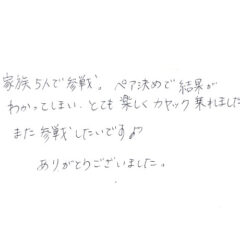 家族5人で参戦。ペア決めで結果が
わかってしまい、とても楽しくカヤック乗れました
また参戦したいです♪
ありがとうございました。